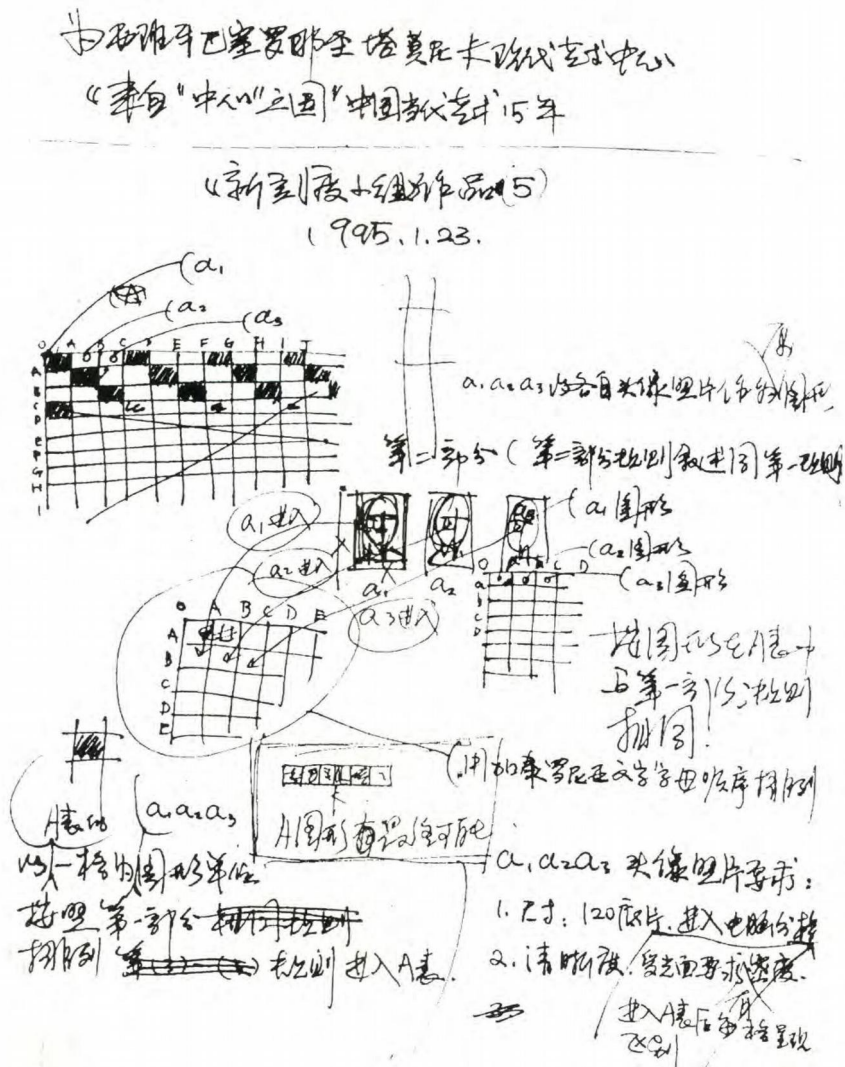 为西班牙巴塞罗那圣塔莫尼卡现代艺术中心
《来自"中心"之国》中国当代艺术15年
《新刻度小组作品(5)
1995.1.23.
(a1
A
(a2
(a3
O A B C D E F G H I J
A
B
C
D
E
F
G
H
I
a1a2a3以各自头像照片作为图形
第二部分(第二部分规则叙述同第一规则
a1进入
a2进入
a3进入
a1
a2
(a1图形
(a2图形
(a3图形
O A B C D
a
b
C
D
O A B C D E
A
B
C
D
E
按图形在A表中
与第一部分规则
排图
加泰罗尼亚文字字母顺序排列
A表
a1a2a3
A图形
以一格为图形单位
按照第一部分
排列 规则进入A表.
a1a2a3头像照片要求:
1.尺寸:120底片.进入电脑分格
2.清晰度.
进入A表后每格呈现
区别